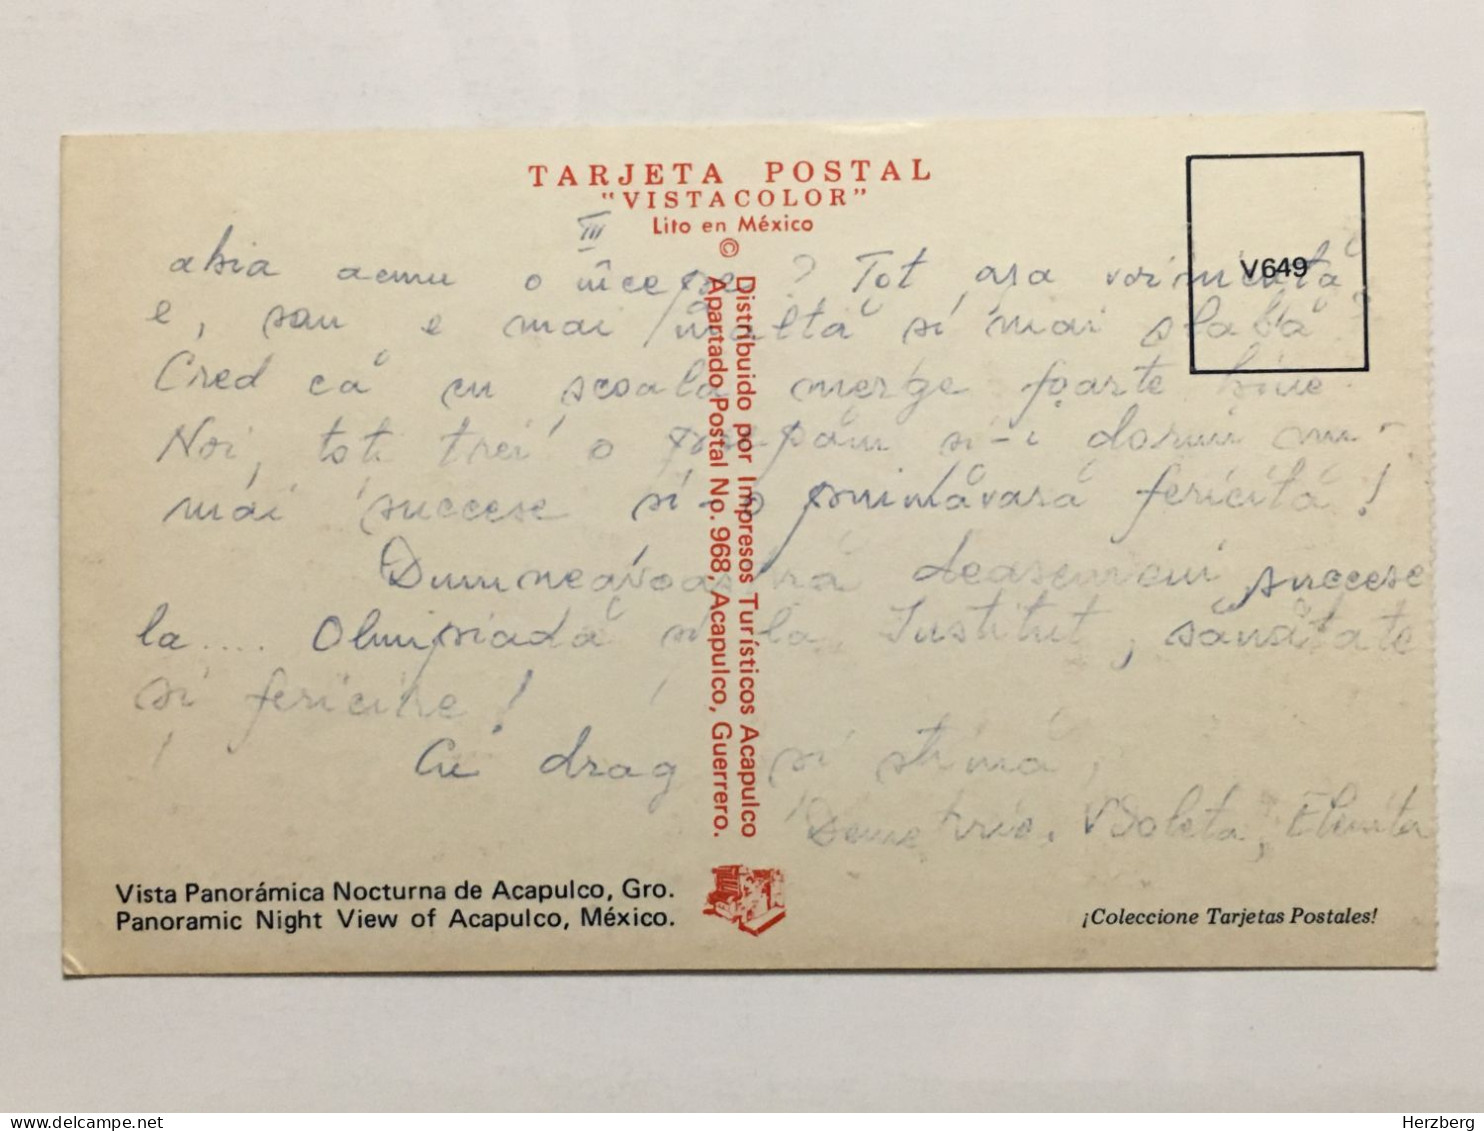 TARJETA POSTAL
"VISTACOLOR"
Lito en México
©
III
V649
abia acmu o începe? Tot așa voinicuță
e, sau e mai înaltă și mai slabă?
Cred că cu scoala merge foarte bine.
Noi, toti trei o pupăm și-i dorim nu-
mai succese și-o primăvară fericită!
Dumneavoastră deasemeni succese
la.... Olimpiadă și la Institut, sănătate
și fericire!
Cu drag și stimă,
Demetrio, Violeta, Elenita
Distribuido por Impresos Turísticos Acapulco
Apartado Postal No. 968, Acapulco, Guerrero.
Vista Panorámica Nocturna de Acapulco, Gro.
Panoramic Night View of Acapulco, México.
¡Coleccione Tarjetas Postales!
Herzberg